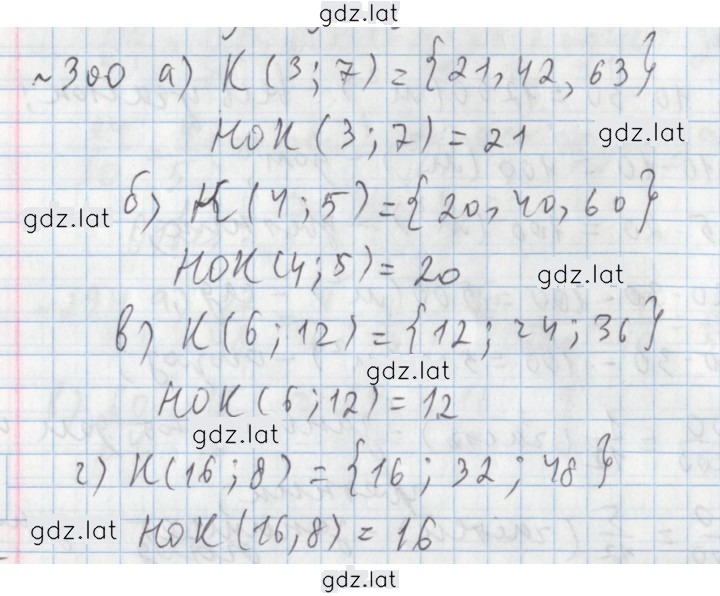 gdz.lat
~300 а) К(3;7)={21,42,63}
НОК(3;7)=21
gdz.lat
б) К(4;5)={20,40,60}
gdz.lat
НОК(4;5)=20
gdz.lat
в) К(6;12)={12;24;36}
gdz.lat
НОК(6;12)=12
gdz.lat
г) К(16;8)={16;32;48}
gdz.lat
НОК(16,8)=16
gdz.lat